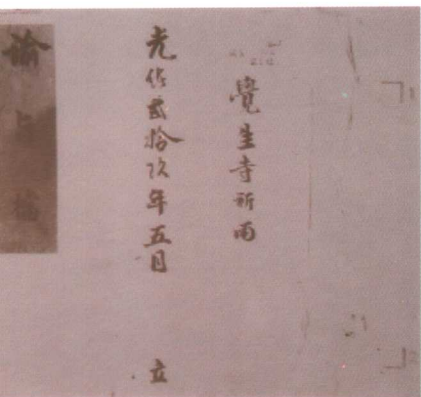 覺生寺祈雨
光緒貳拾玖年五月 立
諭旨檔